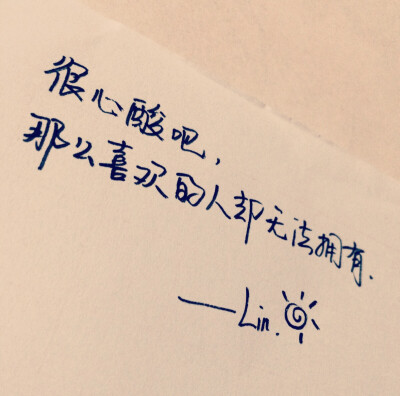 很心酸吧，
那么喜欢的人却无法拥有.
——Lin.